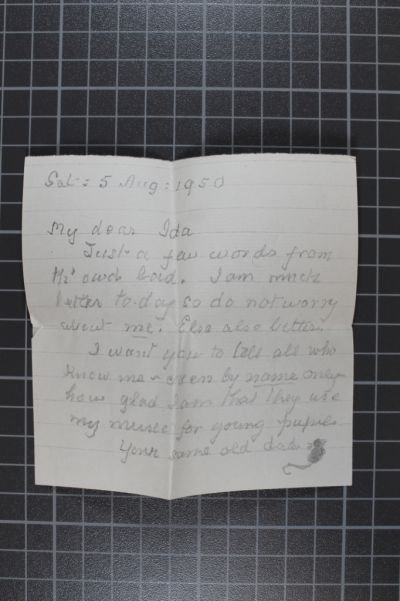 Sat: 5 Aug: 1950
My dear Ida
Just a few words from
the owd lad. I am much
better to-day so do not worry
about me. Else also better.
I want you to tell all who
know me - even by name only
how glad I am that they use
my music for young pupils.
Your same old